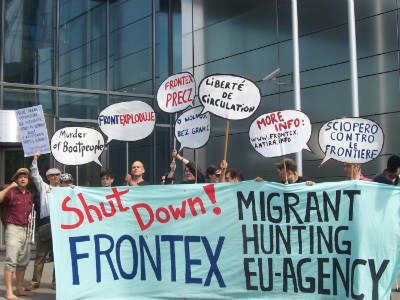 Murder
of Bootpeople
FRONTEXPLODUJE
FRONTEX
PRECZ
LIBERTÉ
DE
CIRCULATION
O WOLNOŚĆ
BEZ GRANIC
MORE
INFO:
WWW.FRONTEX.
ANTIRA.INFO
SCIOPERO
CONTRO
LE
FRONTIERE
Shut Down!
FRONTEX
MIGRANT
HUNTING
EU-AGENCY